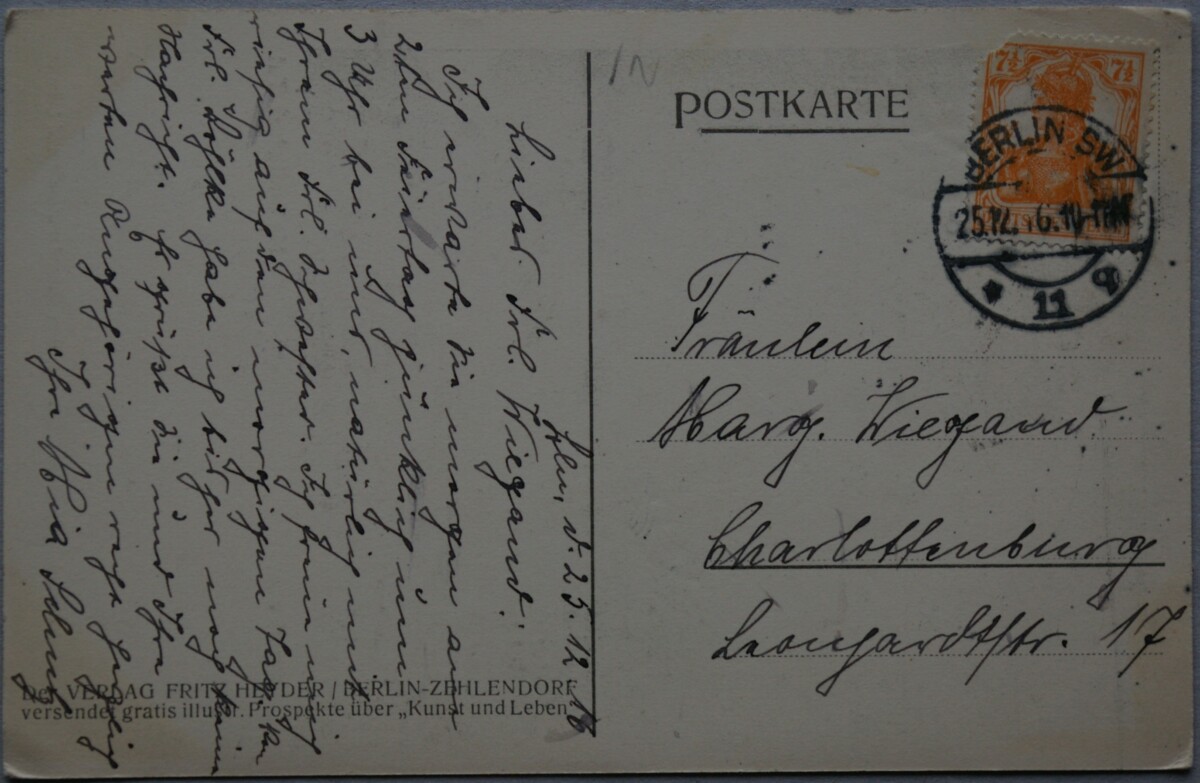 POSTKARTE
7½ 7½
BERLIN SW
25.12.16.10-11N
* 11 q
Fräulein
Marg. Wiegand
Charlottenburg
Leonhardtstr. 17
d. 25.12.16
Liebes Frl. Wiegand!
Ich erwarte Sie morgen am
2ten Feiertag pünktlich um
3 Uhr bei mir, natürlich mit
Ihrem Frl. Schwester. Ich freue mich
riesig auf den morgigen Tag. Von
Frl. habe ich bisher noch keine
Nachricht. Es grüßt Sie und Ihre
werten Angehörigen recht herzlich
Ihre
Der VERLAG FRITZ HEYDER / BERLIN-ZEHLENDORF
versendet gratis illustr. Prospekte über „Kunst und Leben"